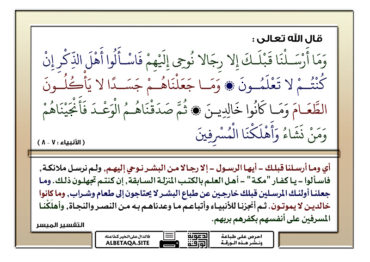 قال الله تعالى :
وَمَا أَرْسَلْنَا قَبْلَكَ إِلا رِجَالا نُوحِي إِلَيْهِمْ فَاسْأَلُوا أَهْلَ الذِّكْرِ إِنْ
كُنْتُمْ لا تَعْلَمُونَ ۞ وَمَا جَعَلْنَاهُمْ جَسَدًا لا يَأْكُلُونَ
الطَّعَامَ وَمَا كَانُوا خَالِدِينَ ۞ ثُمَّ صَدَقْنَاهُمُ الْوَعْدَ فَأَنْجَيْنَاهُمْ
وَمَنْ نَشَاءُ وَأَهْلَكْنَا الْمُسْرِفِينَ
( الأنبياء : ٧ - ٨ )
أي وما أرسلنا قبلك - أيها الرسول - إلا رجالا من البشر نوحي إليهم، ولم نرسل ملائكة،
فاسألوا - يا كفار "مكة" - أهل العلم بالكتب المنزلة السابقة، إن كنتم تجهلون ذلك. وما
جعلنا أولئك المرسلين قبلك خارجين عن طباع البشر لا يحتاجون إلى طعام وشراب، وما كانوا
خالدين لا يموتون. ثم أنجزنا للأنبياء وأتباعهم ما وعدناهم به من النصر والنجاة، وأهلكنا
المسرفين على أنفسهم بكفرهم بربهم.
التفسير الميسر
احرص على طباعة
ونشر هذه الورقة
الدال على الخير كفاعله
ALBETAQA.SITE